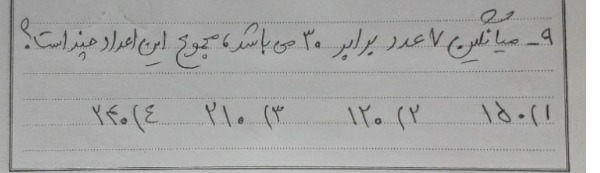 ۹- میانگین ۷ عدد برابر ۳۰ می باشد، مجموع این اعداد چند است؟
۱) ۱۵۰ ۲) ۱۲۰ ۳) ۲۱۰ ۴) ۲۴۰